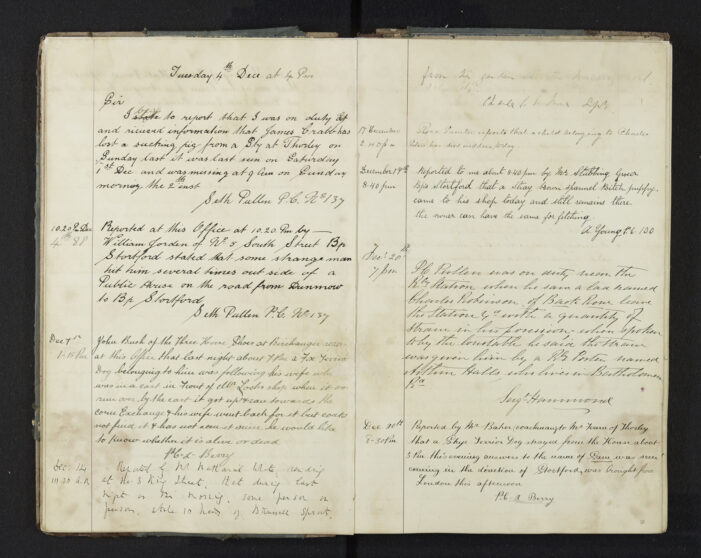 Tuesday 4th Dece at 4 Pm
Sir
I to report that I was on duty at
and received information that James Crabb has
lost a sucking pig from a Sty at Thorley on
Sunday last it was last seen on Saturday
1st Dec and was missing at 9 Am on Sunday
morning the 2nd inst
Seth Pullen P.C. No 137
10.20 Pm Dec
4th 88
Reported at this Office at 10.20 Pm by
William Gorden of No 8 South Street Bp
Stortford stated that some strange man
hit him several times out side of a
Public House on the road from Dunmow
to Bp Stortford
Seth Pullen P.C. No 137
Dec 7th
Pm
John Bush of the Three Horse Shoes at Birchanger
at this Office that last night about 7 Pm a Fox Terrier
Dog belonging to him was following his wife who
was in a cart in Front of Mr shop when it was
run over by the cart it got up & ran towards the
Corn Exchange & his wife went back for it but could
not find it & has not seen it since he would like
to know whether it is alive or dead
P.C. A Berry
Dec 14
10.30 A.M
Reported by Mr Nathaniel White, residing
at No 3 King Street, that during last
night or this morning, some person or
persons, stole 10 heads of Sprout.
from his garden
Charles
17 December
reports that a child belonging to Charles
today
December 19th
8.40 pm
Reported to me about 8.40 pm by Mr Stebbing Grocer
Bps Stortford that a stray Brown Spaniel Bitch puppy
came to his shop today and still remains there
the owner can have the same for fetching
A Young P.C. 130
Dec 20th
7 pm
PC Pullen was on duty near the
Rly Station when he saw a lad named
Charles Robinson of Back Row leave
the Station Yd with a quantity of
Straw in his possession, when spoken
to by the Constable he said the straw
was given him by a Ry Porter named
Halls who lives in Bartholomew
Rd
Sergt Hammond
Dec 20th
8.30 Pm
Reported by Mr Baker coachman to Mr of Thorley
that a Skye Terrier Dog strayed from the House about
3 Pm this evening answers to the name of was seen
coming in the direction of Stortford, was brought from
London this afternoon
P.C. A Berry